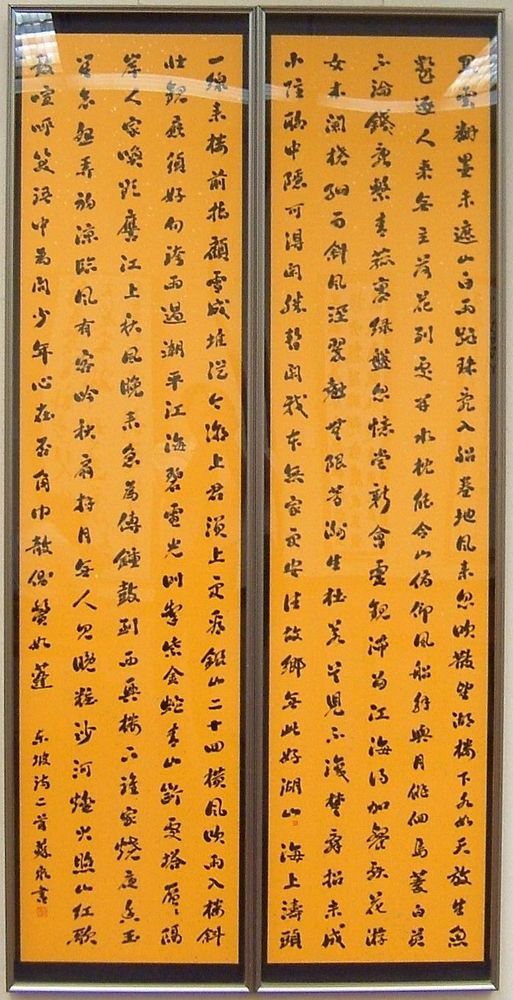 黑雲翻墨未遮山白雨跳珠亂入船卷地風来忽吹散望湖樓下水如天放生魚
鼈逐人来無主荷花到處開水枕能令山俯仰風船解與月徘徊烏菱白芡
不論錢亂繫青菰裹緑盤忽憶嘗新會靈觀滯留江海得加餐獻花游
女木蘭橈細雨斜風濕翠翹無限芳洲生杜若吴兒不識楚辭招未成
小隱聊中隱可得閑勝暫閑我本無家更安往故鄉無此好湖山 海上濤頭
一線来樓前指顧雪成堆從今潮上君須上更看銀山二十四横風吹雨入樓斜
壯觀應須好句誇雨過潮平江海碧電光时掣紫金蛇青山斷處塔層層隔
岸人家唤欲應江上秋風晚来急為傳鐘鼓到西興樓下誰家燒夜香玉
笙哀怨弄初涼臨風有客吟秋扇拜月無人見晚粧沙河燈火照山紅歌
鼓喧呼笑語中為問少年心在否角巾欹側鬢如蓬 东坡詩二首蘇書